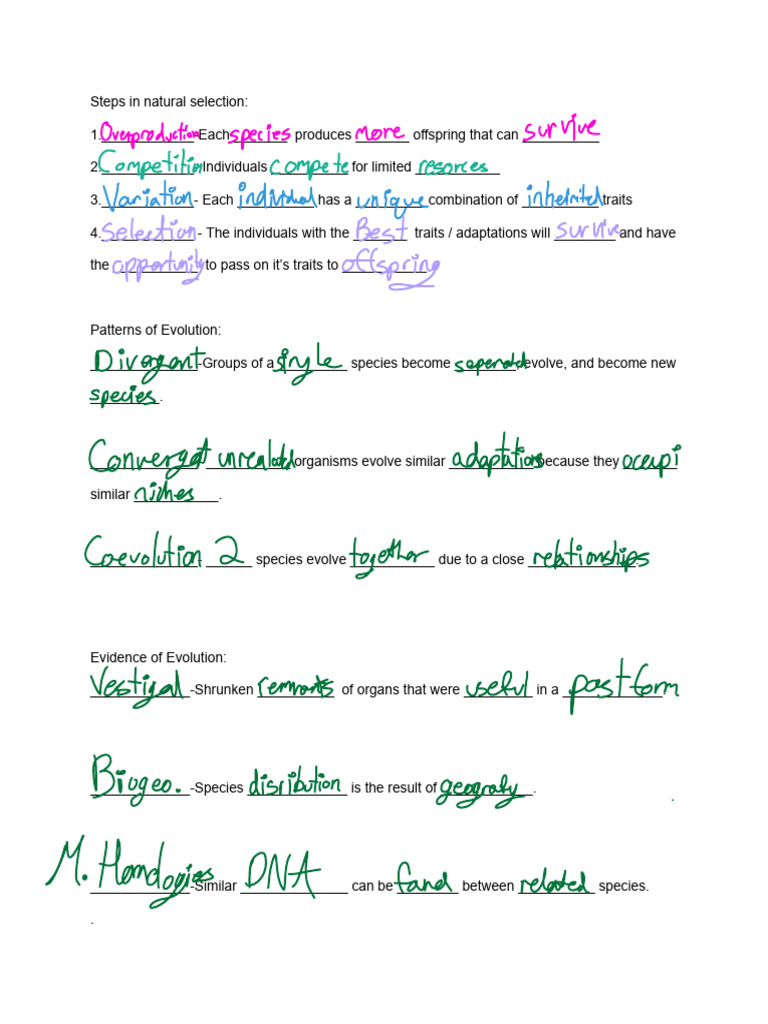 Steps in natural selection:
1. Overproduction-Each species produces more offspring that can survive
2. Competition Individuals compete for limited resorces
3. Variation- Each individual has a unique combination of inherited traits
4. Selection- The individuals with the Best traits / adaptations will survive and have
the opportunity to pass on it's traits to offspring
Patterns of Evolution:
Divergent-Groups of a single species become seperated, evolve, and become new
species.
Convergent unrealated organisms evolve similar adaptations because they occupi
similar niches.
Coevolution 2 species evolve together due to a close relationships.
Evidence of Evolution:
Vestigal-Shrunken remnants of organs that were useful in a past form
Biogeo.-Species disribution is the result of geografy.
M. Homologies-Similar DNA can be fand between related species.
.